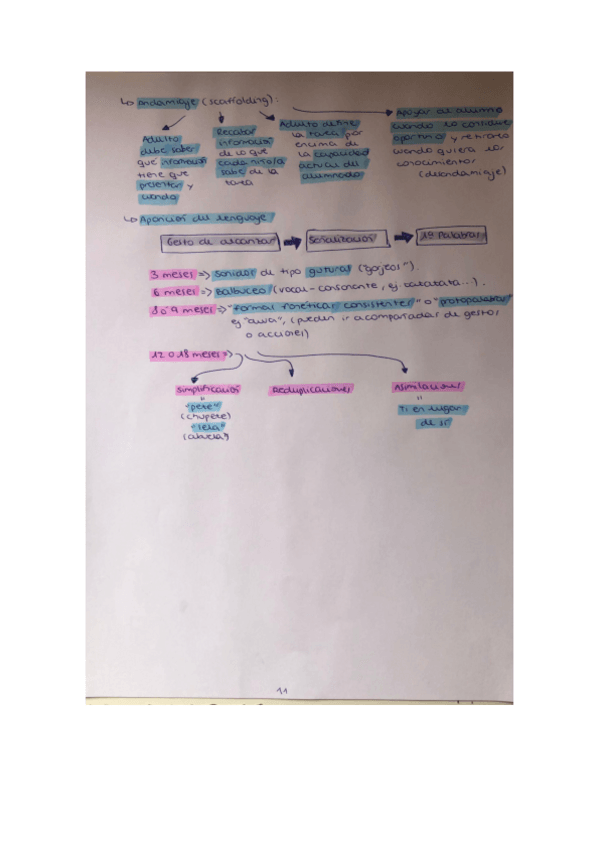 ↳ andamiaje (scaffolding):
Adulto
debe saber
que información
tiene que
presentar y
cuando
Recabar
información
de lo que
cada niño/a
sabe de la
tarea
Adulto define
la tarea por
encima de
la capacidad
actual del
alumnado
Apoyar al alumno
cuando lo considere
oportuno y retirarlo
cuando quiera los
conocimientos
(desandamiaje)
↳ Aparición del lenguaje
Gesto de alcanzar
Señalización
1ª Palabras
3 meses => sonidos de tipo gutural ("gorjeos").
6 meses => balbuceo (vocal-consonante, ej.
8 o 9 meses => "formas fonéticas consistentes" o "protopalabras"
ej "awa", (pueden ir acompañadas de gestos
o acciones).
12 o 18 meses =>
Simplificación
"
"pete"
(chupete)
"lela"
(abuela)
Reduplicaciones
Asimilaciones
"
Ti en lugar
de sí
11